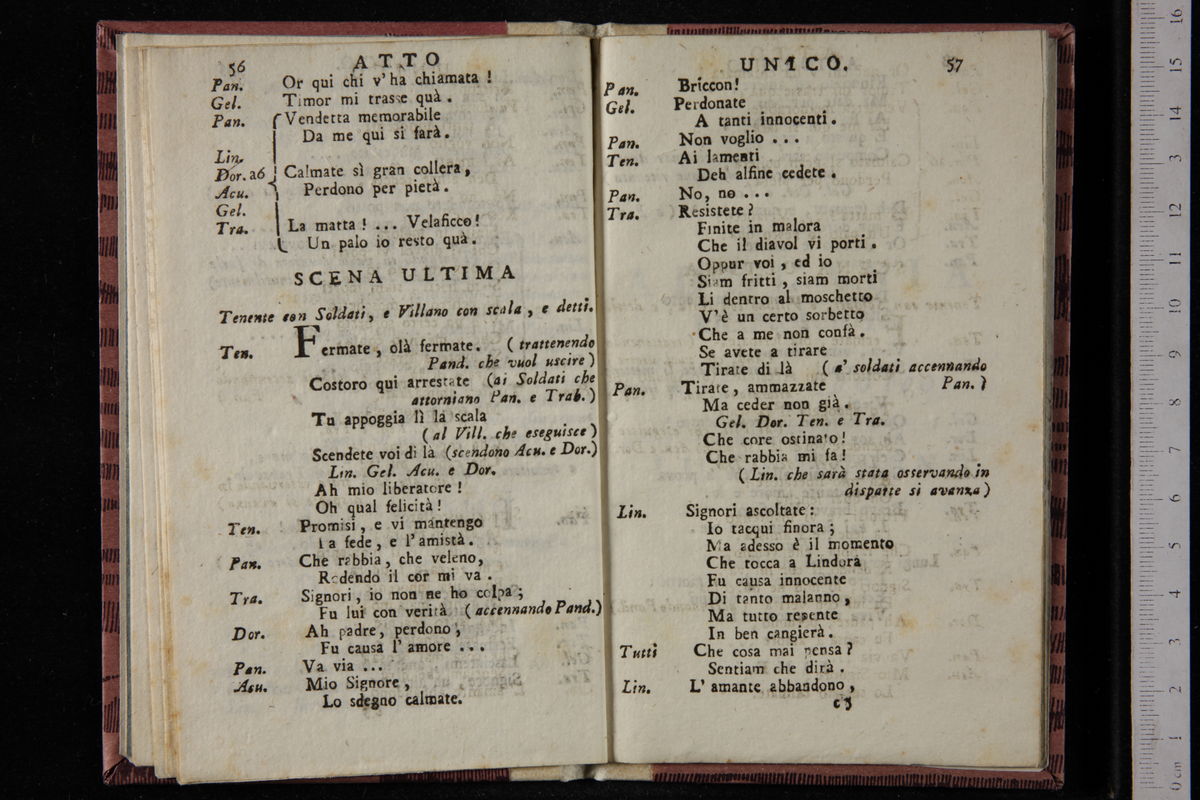 56 ATTO
Pan. Or qui chi v'ha chiamata !
Gel. Timor mi trasse quà .
Pan. Vendetta memorabile
Da me qui si farà .
Lin.
Dor. a6 Calmate sì gran collera ,
Acu. Perdono per pietà .
Gel.
Tra. La matta ! ... Velaficco !
Un palo io resto quà .
SCENA ULTIMA
Tenente con Soldati , e Villano con scala , e detti.
Ten. Fermate , olà fermate . ( trattenendo
Pand. che vuol uscire )
Costoro qui arrestate (ai Soldati che
attorniano Pan. e Trab. )
Tu appoggia lì la scala
( al Vill. che eseguisce )
Scendete voi di là (scendono Acu. e Dor.)
Lin. Gel. Acu. e Dor.
Ah mio liberatore !
Oh qual felicità !
Ten. Promisi , e vi mantengo
La fede , e l'amistà .
Pan. Che rabbia , che veleno ,
Rodendo il cor mi va .
Tra. Signori , io non ne ho colpa ;
Fu lui con verità ( accennando Pand.)
Dor. Ah padre , perdono ,
Fu causa l'amore ...
Pan. Va via ...
Acu. Mio Signore ,
Lo sdegno calmate .
UNICO. 57
Pan. Briccon !
Gel. Perdonate
A tanti innocenti .
Pan. Non voglio ...
Ten. Ai lamenti
Deh alfine cedete .
Pan. No, no ...
Tra. Resistete ?
Finite in malora
Che il diavol vi porti .
Oppur voi , ed io
Siam fritti , siam morti
Li dentro al moschetto
V'è un certo sorbetto
Che a me non confà .
Se avete a tirare
Tirate di là ( a' soldati accennando
Pan. )
Pan. Tirate , ammazzate
Ma ceder non già .
Gel. Dor. Ten. e Tra.
Che core ostinato !
Che rabbia mi fa !
( Lin. che sarà stata osservando in
disparte si avanza )
Lin. Signori ascoltate :
Io tacqui finora ;
Ma adesso è il momento
Che tocca a Lindora
Fu causa innocente
Di tanto malanno ,
Ma tutto repente
In ben cangierà .
Tutti Che cosa mai pensa ?
Sentiam che dirà .
Lin. L'amante abbandono ,
c5
0 cm 1 2 3 4 5 6 7 8 9 10 11 12 13 14 15 16